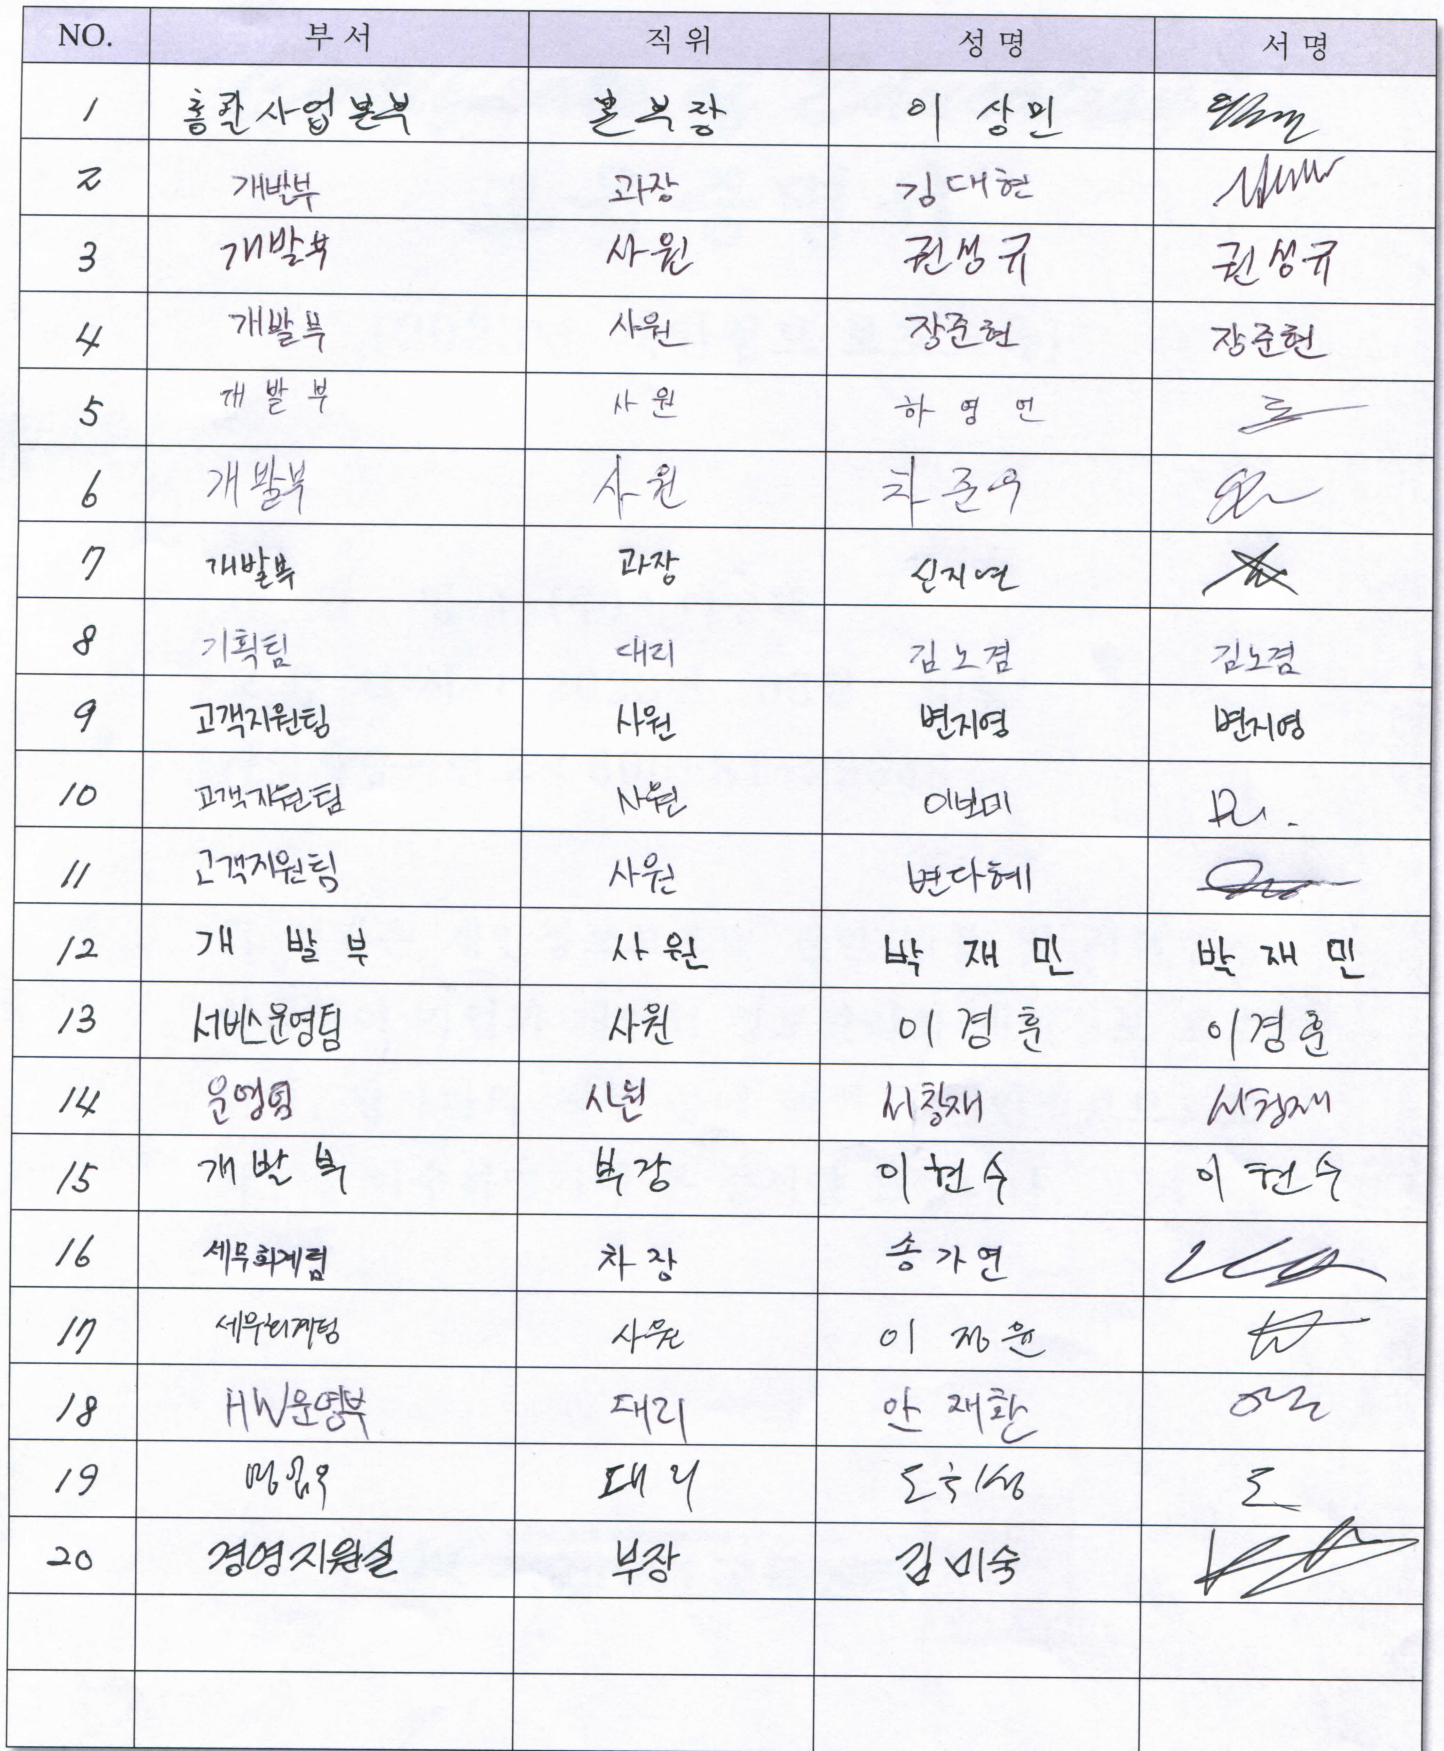 NO. 부서 직위 성명 서명
1 총괄사업본부 본부장 이상민
2 개발부 과장 김대현
3 개발부 사원 권성규 권성규
4 개발부 사원 장준현 장준현
5 개발부 사원 하영언
6 개발부 사원 차준우
7 개발부 과장 신지연
8 기획팀 대리 김노겸 김노겸
9 고객지원팀 사원 변지영 변지영
10 고객지원팀 사원 이보미
11 고객지원팀 사원 변다혜
12 개발부 사원 박재민 박재민
13 서비스운영팀 사원 이경훈 이경훈
14 운영팀 사원 서창재 서창재
15 개발부 부장 이현수 이현수
16 세무회계팀 차장 송가연
17 세무회계팀 사원 이정윤
18 HW운영부 대리 안재환
19 대리 도
20 경영지원실 부장 김미숙